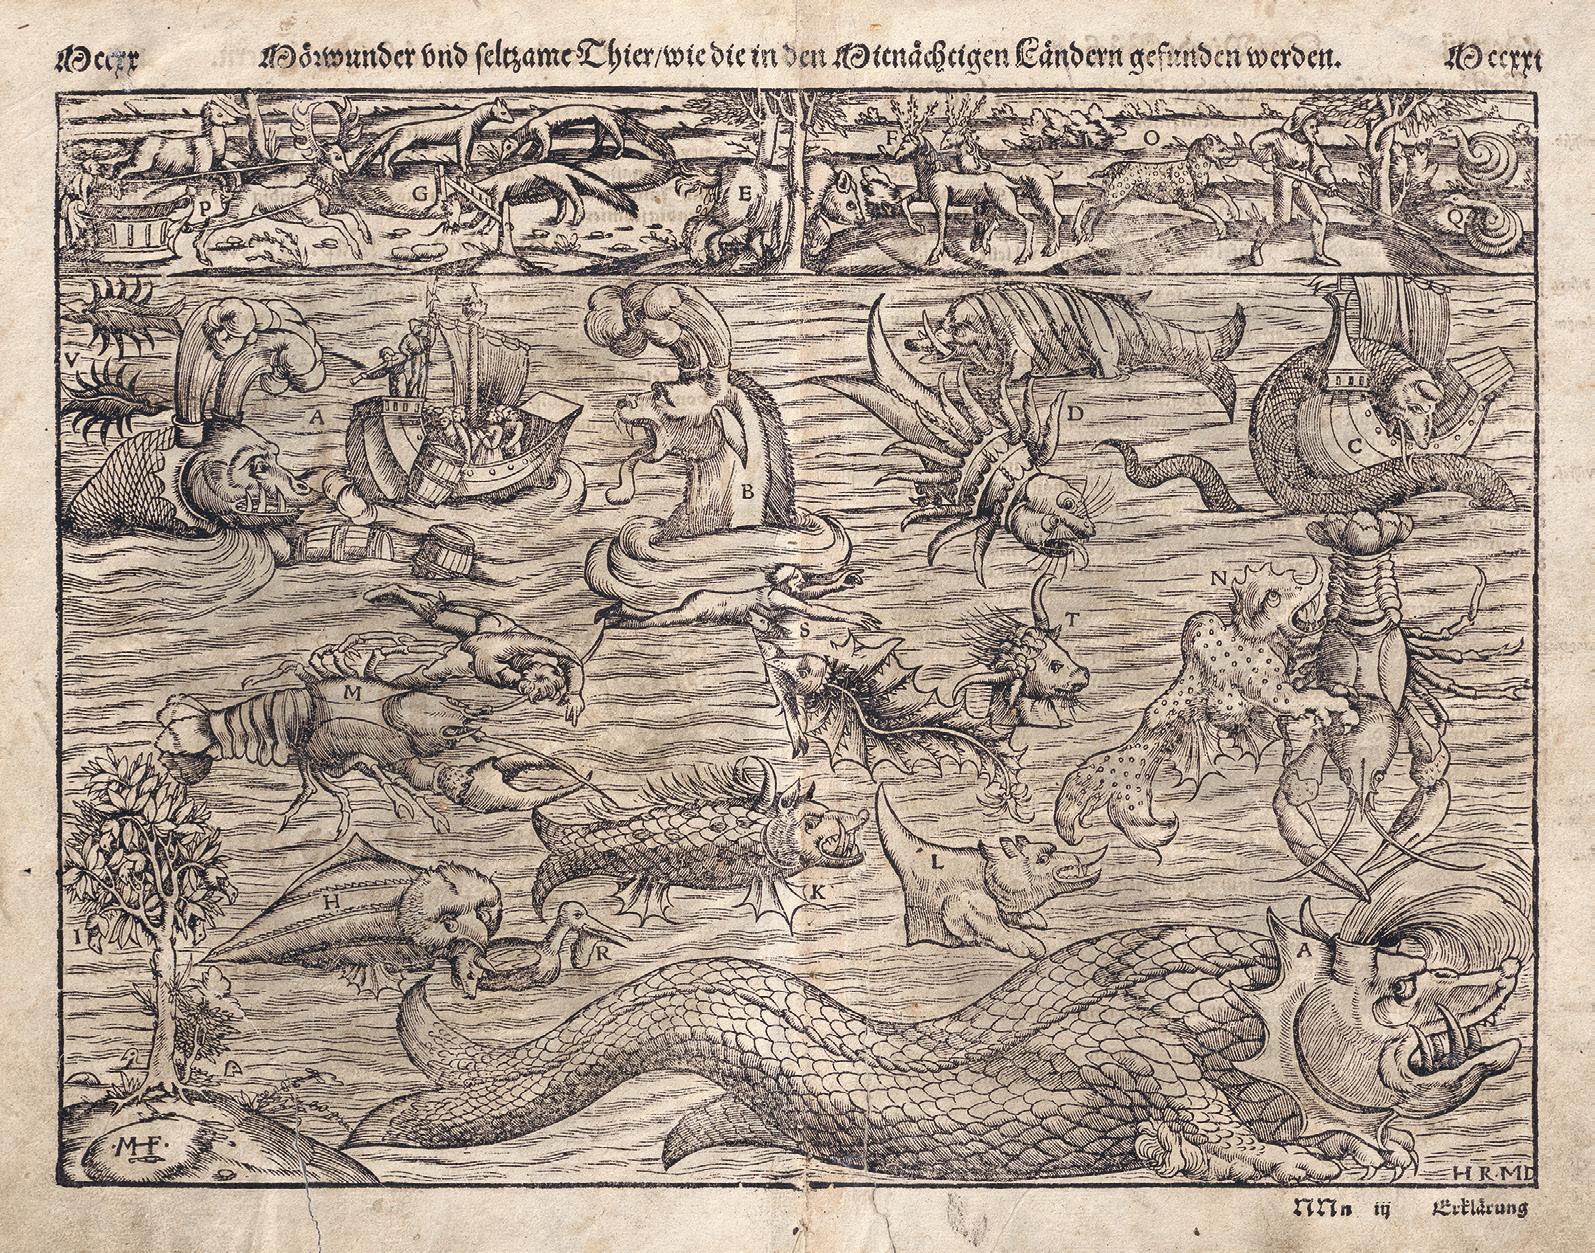 Mccxx Mörwunder vnd seltzame Thier/wie die in den Mitnächtigen Ländern gefunden werden. Mccxxi
F O
P G E
Q
V
A D
C
B
N
S T
M
L
H K
I
R
A
MHF
H R·MD
NNn iij Erklärung